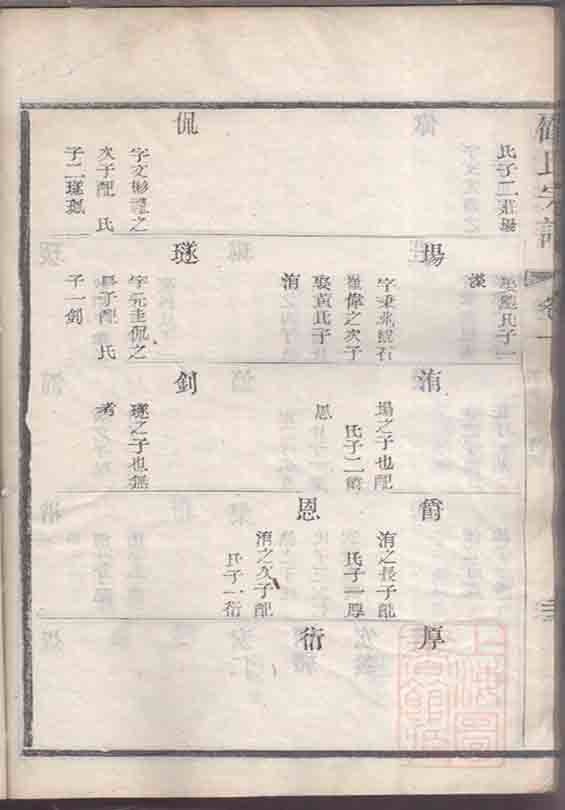 氏宗譜
卷一
三
侃
字文彬禮之
次子配　氏
子二璲
娶魏氏子一
瑒
字秉兆號石
崖偉之次子
娶黃氏子
洧
璲
字元圭侃之
長子配　氏
子一釗
洧
瑒之子也配
氏子二爵
恩
釗
璲之子也無
考
爵
洧之長子配
氏子一厚
恩
洧之次子配
氏子一衍
厚
衍
上海圖